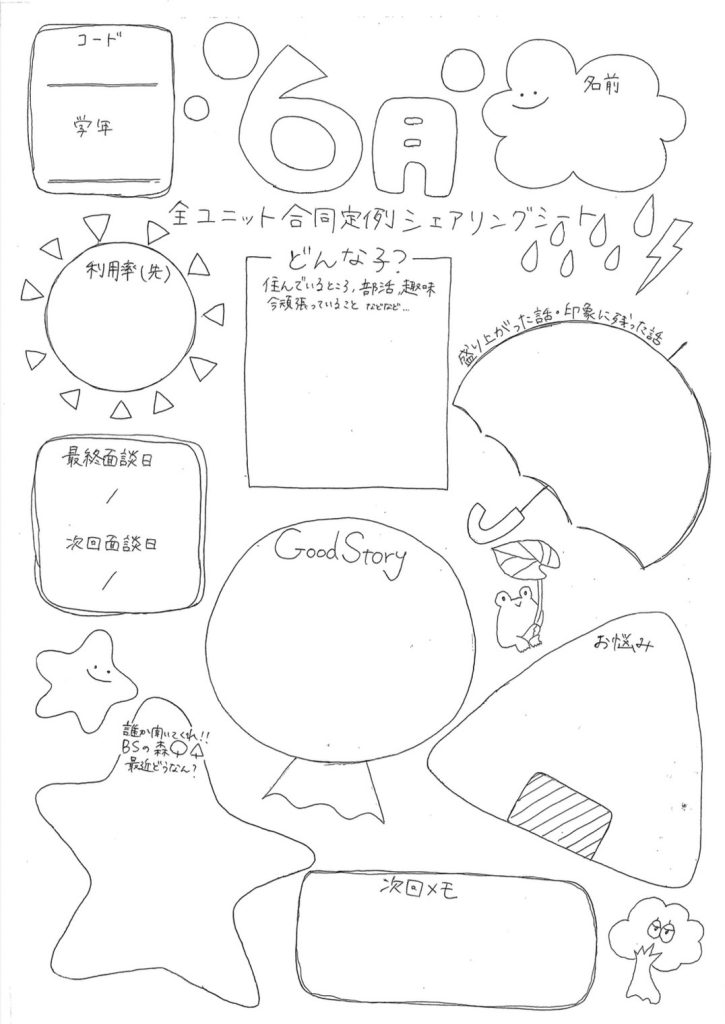 コード
学年
6月
名前
全ユニット合同定例シェアリングシート
利用率(先)
どんな子?
住んでいるところ,部活,趣味
今頑張っていること などなど...
盛り上がった話・印象に残った話
最終面談日
/
次回面談日
/
Good Story
お悩み
誰か聞いてくれ!!
BSの森
最近どうなん?
次回メモ